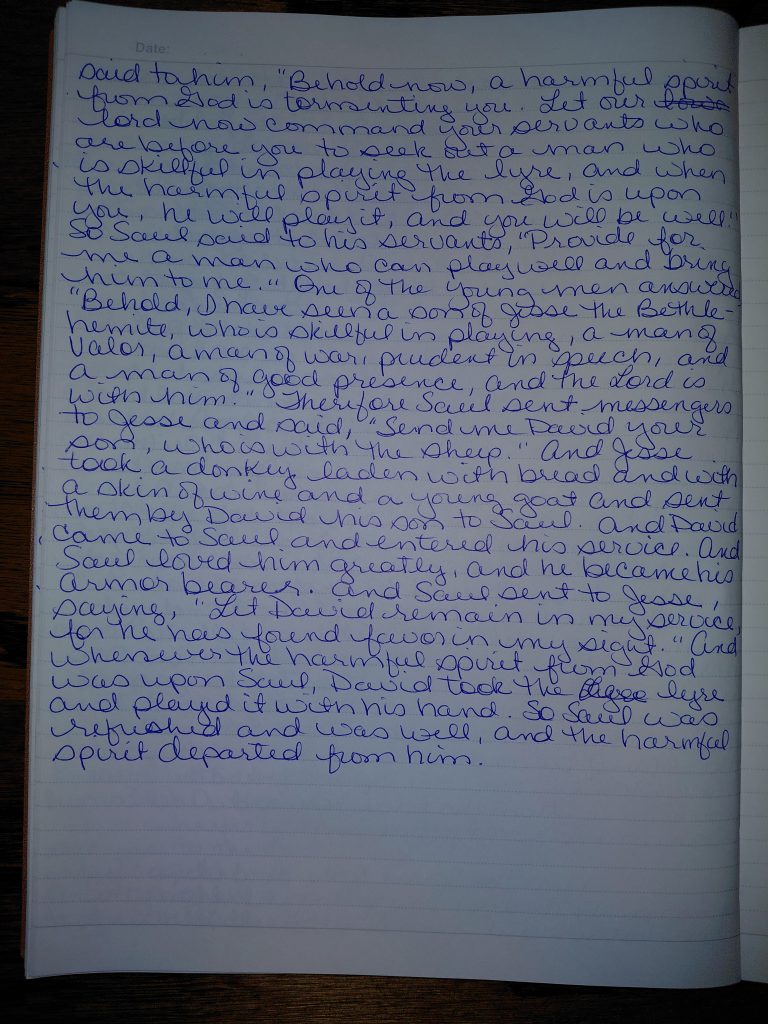 Date:
said to him, "Behold now, a harmful spirit
from God is tormenting you. Let our
lord now command your servants who
are before you to seek out a man who
is skillful in playing the lyre, and when
the harmful spirit from God is upon
you, he will play it, and you will be well."
So Saul said to his servants, "Provide for
me a man who can play well and bring
him to me." One of the young men answered
"Behold, I have seen a son of Jesse the Bethle-
hemite, who is skillful in playing, a man of
valor, a man of war, prudent in speech, and
a man of good presence, and the Lord is
with him." Therefore Saul sent messengers
to Jesse and said, "Send me David your
son, who is with the sheep." And Jesse
took a donkey laden with bread and with
a skin of wine and a young goat and sent
them by David his son to Saul. And David
came to Saul and entered his service. And
Saul loved him greatly, and he became his
armor bearer. And Saul sent to Jesse,
saying, "Let David remain in my service,
for he has found favor in my sight." And
whenever the harmful spirit from God
was upon Saul, David took the lyre
and playd it with his hand. So Saul was
refreshed and was well, and the harmful
spirit departed from him.